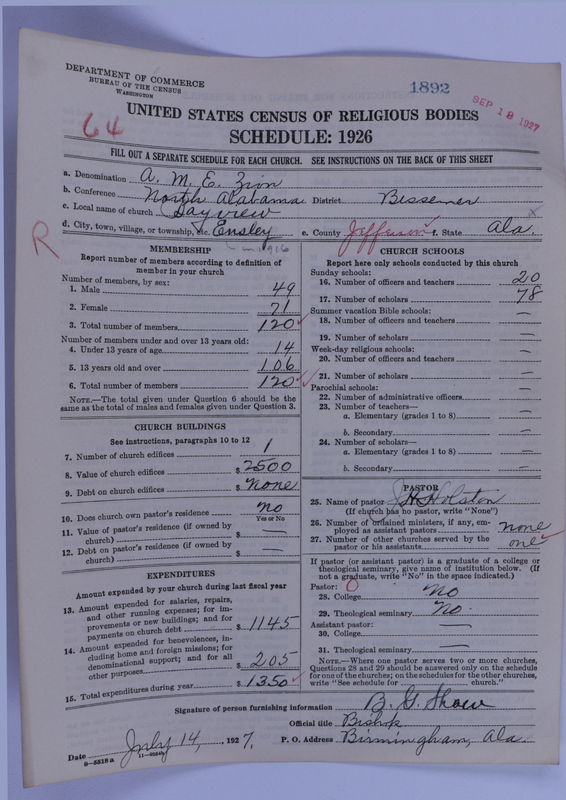 DEPARTMENT OF COMMERCE
BUREAU OF THE CENSUS
WASHINGTON
1892
SEP 18 1927
64
UNITED STATES CENSUS OF RELIGIOUS BODIES
SCHEDULE: 1926
FILL OUT A SEPARATE SCHEDULE FOR EACH CHURCH. SEE INSTRUCTIONS ON THE BACK OF THIS SHEET
a. Denomination A. M. E. Zion
b. Conference North Alabama District Bessemer
c. Local name of church Bayview
d. City, town, village, or township, etc. Ensley e. County Jefferson f. State Ala.
R
1916
MEMBERSHIP
Report number of members according to definition of member in your church
Number of members, by sex:
1. Male 49
2. Female 71
3. Total number of members 120
Number of members under and over 13 years old:
4. Under 13 years of age 14
5. 13 years old and over 106
6. Total number of members 120
NOTE.—The total given under Question 6 should be
same as the total of males and females given under Question 3.
CHURCH BUILDINGS
See instructions, paragraphs 10 to 12
7. Number of church edifices 1
8. Value of church edifices $ 2500
9. Debt on church edifices $ None
10. Does church own pastor's residence no
Yes or No
11. Value of pastor's residence (if owned by
church) $ —
12. Debt on pastor's residence (if owned by
church) $ —
EXPENDITURES
Amount expended by your church during last fiscal year
13. Amount expended for salaries, repairs,
and other running expenses; for im-
provements or new buildings; and for
payments on church debt $ 1145
14. Amount expended for benevolences, in-
cluding home and foreign missions; for
denominational support; and for all
other purposes $ 205
15. Total expenditures during year $ 1350
CHURCH SCHOOLS
Report here only schools conducted by this church
Sunday schools:
16. Number of officers and teachers 20
17. Number of scholars 78
Summer vacation Bible schools:
18. Number of officers and teachers —
19. Number of scholars —
Week-day religious schools:
20. Number of officers and teachers —
21. Number of scholars —
Parochial schools:
22. Number of administrative officers —
23. Number of teachers—
a. Elementary (grades 1 to 8) —
b. Secondary —
24. Number of scholars—
a. Elementary (grades 1 to 8) —
b. Secondary —
PASTOR
25. Name of pastor J. H. Holston
(If church has no pastor, write "None")
26. Number of ordained ministers, if any, em-
ployed as assistant pastors none
27. Number of other churches served by the
pastor or his assistants one
If pastor (or assistant pastor) is a graduate of a college or
theological seminary, give name of institution below. (If
not a graduate, write "No" in the space indicated.)
Pastor: 0
28. College No
29. Theological seminary No.
Assistant pastor:
30. College —
31. Theological seminary —
NOTE.—Where one pastor serves two or more churches,
Questions 28 and 29 should be answered only on the schedule
for one of the churches; on the schedules for the other churches,
write "See schedule for church."
Signature of person furnishing information B. G. Shaw
Official title Bishop
Date July 14, 1927. P. O. Address Birmingham, Ala.